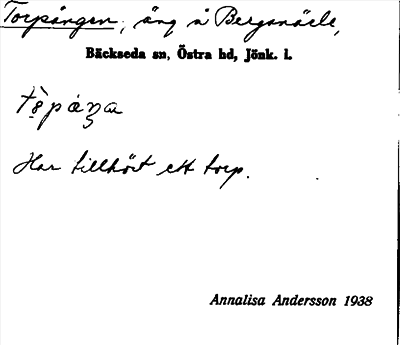 Torpängen, äng å Bergsnäsle,
Bäckseda sn, Östra hd, Jönk. l.
Har tillhört ett torp.
Annalisa Andersson 1938